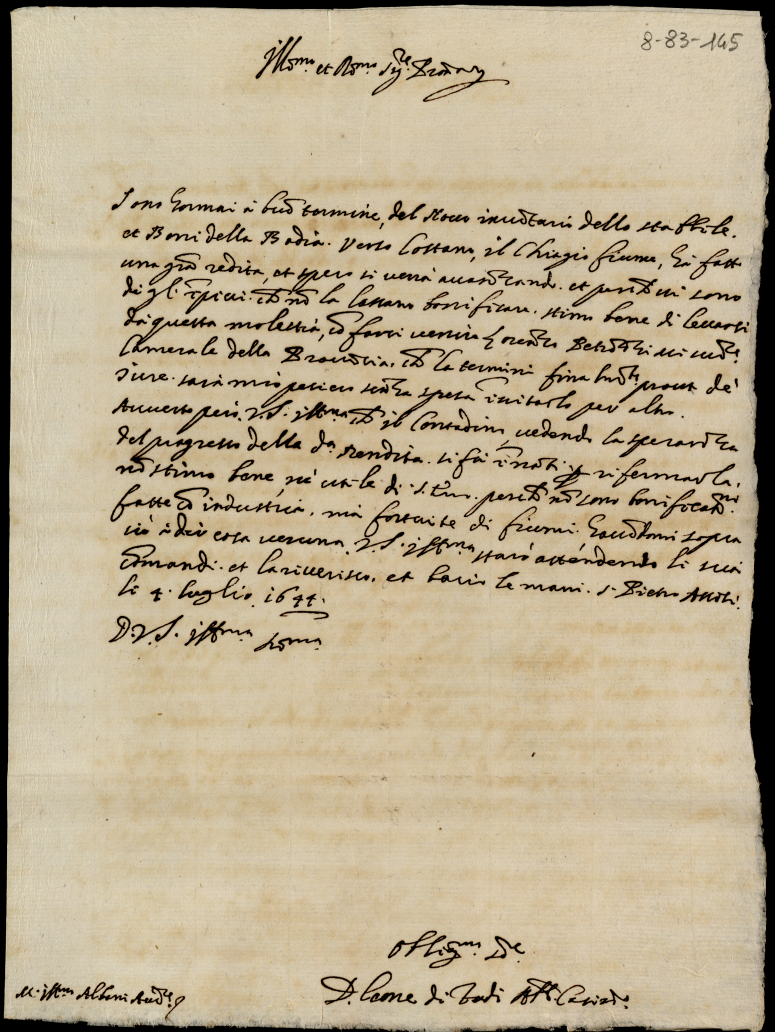 8-83-145
Ill.mo et R.mo Sig.re Pron
Sono hormai à buō termine, del novo invētario dello stabbile.
et Beni della Badia. Verso Costano, il Chiagio fiume, hà fatto
una grā redita, et spero si verrà avāzando. et perche vi sono
di gl. che nō la lassano bonificare. stimo bene di levarsi
da questa molestia, cō farci venire Lorenzo
Camerale della Provīcia. che la termini prout de
iure. sarà mio senza spesa per altro.
Averto però V.S. Ill.ma che il Contadino, vedendo la speranza
del progresso della d.a rendita. si fà rifermarla,
nō stimo bene, nè utile di perche nō sono bonificat
fatte cō industria, mà fortuite di fiumi. Havēdomi sopra
ciò à dir cosa veruna. V.S. Ill.ma starò attendendo li suoi
cōmandi. et la riverisco. et bacio le mani. S. Pietro Assisi
li 4. luglio. 1644.
D. V. S. Ill.ma
Roma
Oblig.mo S.re
D. Leone di Todi Abb. Casin.
M. Ill.mo Albani Aud.re